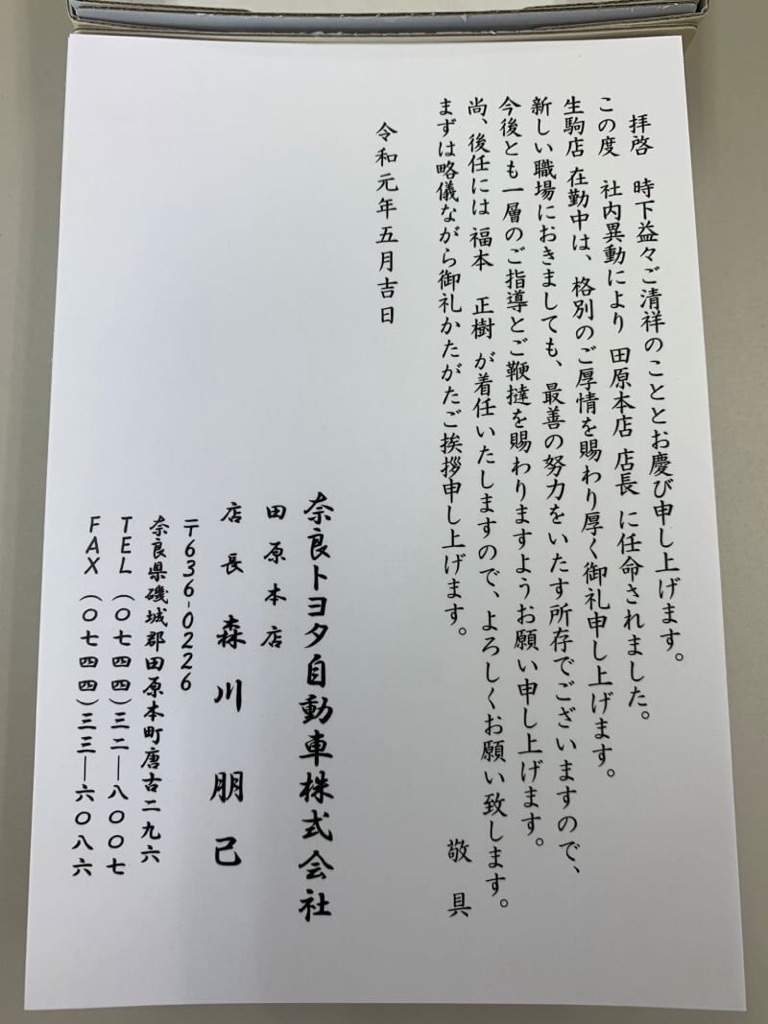 拝啓 時下益々ご清祥のこととお慶び申し上げます。
この度 社内異動により 田原本店 店長 に任命されました。
生駒店 在勤中は、格別のご厚情を賜わり厚く御礼申し上げます。
新しい職場におきましても、最善の努力をいたす所存でございますので、
今後とも一層のご指導とご鞭撻を賜わりますようお願い申し上げます。
尚、後任には 福本 正樹 が着任いたしますので、よろしくお願い致します。
まずは略儀ながら御礼かたがたご挨拶申し上げます。
敬具
令和元年五月吉日
奈良トヨタ自動車株式会社
田原本店
店長 森川 朋己
〒636-0226
奈良県磯城郡田原本町唐古二九六
TEL (〇七四四)三二―八〇〇七
FAX (〇七四四)三三―六〇八六